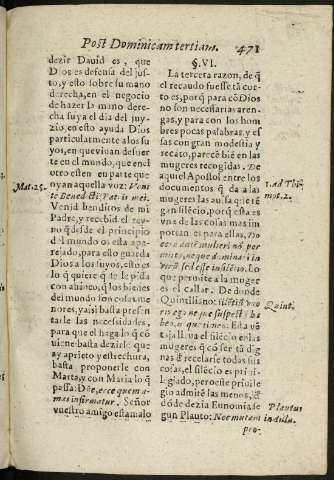 Post Dominicam tertiam. 471
dezir Dauid es, que
Dios es defensa del jus-
to, y esto sobre su mano
derecha, en el negocio
de hazer la mano dere-
cha suya el dia del juy-
zio, en esto ayuda Dios
particularmente a los su
yos, en que viuan de suer
te en el mundo, que en el
otro esten en parte que
oyan aquella voz: Veni
te Benedicti Patris mei.
Venid benditos de mi
Padre, y recebid el rey-
no q̃ desde el principio
del mundo os esta apa-
rejado, para esto guarda
Dios a los suyos, esto es
lo q̃ quiere q̃ le pidã
con ahinco, q̃ los bienes
del mundo son cosas me
nores, y assi basta presen
tarle las necessidades,
para que el haga lo q̃ cõ
uiene basta dezirle que
ay aprieto y estrechura,
basta proponerle con
Marta, y con Maria lo q̃
passa: Dñe, ecce quem a-
mas infirmatur. Señor
vuestro amigo està malo
Mat. 25.
§. VI.
La tercera razon, de q̃
el recaudo fuesse tã cor-
to es, porq̃ para cõ Dios
no son necessarias aren-
gas, y para con los hom
bres pocas palabras, y es
sas con gran modestia y
recato, parecẽ bien en las
mugeres recogidas. De
aquel Apostol entre los
documentos q̃ da a las
mugeres las auisa que tẽ
gan silẽcio, porq̃ esta es
vna de las cosas mas im
portan es para ellas, Do
cere autẽ mulieri nõ per
mitto, neque dominari in
virũ sed esse in silẽcio. Lo
que pertenece a la muger
es el callar. De donde
Quintiliano:
taja lleua el silẽcio en las
mugeres q̃ cõ ser tã dig
nas d̃ recelarse todas sus
cosas, el silẽcio es priui-
legiado, pero este priuile
gio admite las menos, d̃
dõde dezia Eunomia se
gun Plauto: Nec mutam
pro-
1. ad Thi
mot. 2.
Quint.
Plautus
in Aulu.